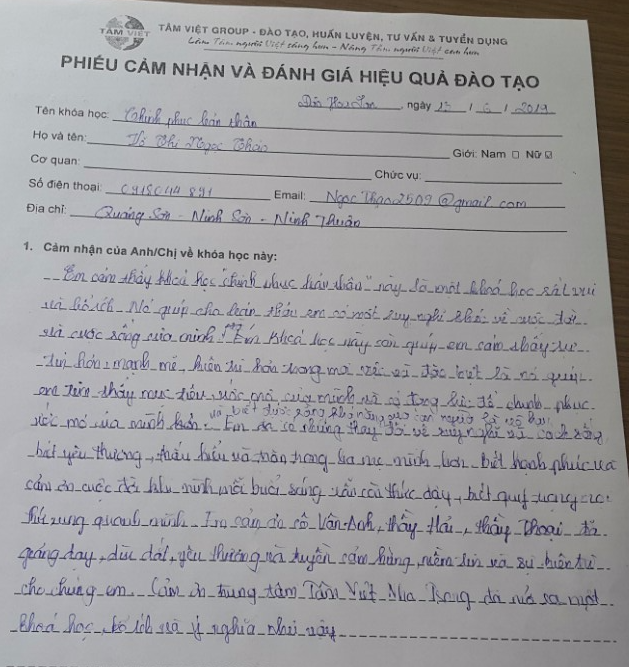 TÂM VIỆT
TÂM VIỆT GROUP - ĐÀO TẠO, HUẤN LUYỆN, TƯ VẤN & TUYỂN DỤNG
Làm Tâm người Việt sáng hơn - Nâng Tầm người Việt cao hơn
PHIẾU CẢM NHẬN VÀ ĐÁNH GIÁ HIỆU QUẢ ĐÀO TẠO
ngày 15 / 6 / 2019
Tên khóa học: Chinh phục bản thân
Họ và tên: Thị Ngọc Thảo Giới: Nam Nữ
Cơ quan: Chức vụ:
Số điện thoại: 0918044891 Email: NgocThao2509@gmail.com
Địa chỉ: Quảng Sơn - Ninh Sơn - Ninh Thuận
1. Cảm nhận của Anh/Chị về khóa học này:
Em cảm thấy khoá học "chinh phục bản thân" này là một khoá học rất vui
và bổ ích. Nó giúp cho bản thân em có một suy nghĩ khác về cuộc đời
và cuộc sống của mình. Khoá học này còn giúp em cảm thấy tự
tin hơn, mạnh mẽ, hơn trong mọi và đặc biệt là nó giúp
em tìm thấy mục tiêu, ước mơ của mình và có động lực để chinh phục
ước mơ của mình hơn. và biết được rằng khả năng của con người là vô hạn
Em có những thay đổi về suy nghĩ và cách sống
biết yêu thương, thấu hiểu và trân trọng ba mẹ mình hơn, biết hạnh phúc và
cảm ơn cuộc đời khi mình mỗi buổi sáng vẫn còn thức dậy, biết quý trọng
xung quanh mình. Em cảm ơn cô Vân Anh, thầy Hải, thầy Thoại đã
giảng dạy, dìu dắt, yêu thương và truyền cảm hứng, niềm tin và sự
cho chúng em. Cảm ơn trung tâm Tâm Việt Nha Trang đã mở ra một
khoá học bổ ích và ý nghĩa như vậy